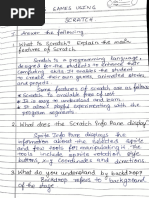 GAMES USING
SCRATCH
1. Answer the following
1. What is Scratch? Explain the main
features of Scratch.
Scratch is a programming language
designed for
computing skills. It enables the student
to create their own projects
Some of the features of Scratch are as follows
• Scratch is available free of cost
• It is easy to understand and learn
• It is about exploration and
2. What does the Scratch Info Pane display?
Sprite Info Pane displays the
information about the selected sprite
and few tools for manipulating it. The
tools include sprite rotation style,
3. What do you understand by backdrop?
Backdrop refers to background
of the stage